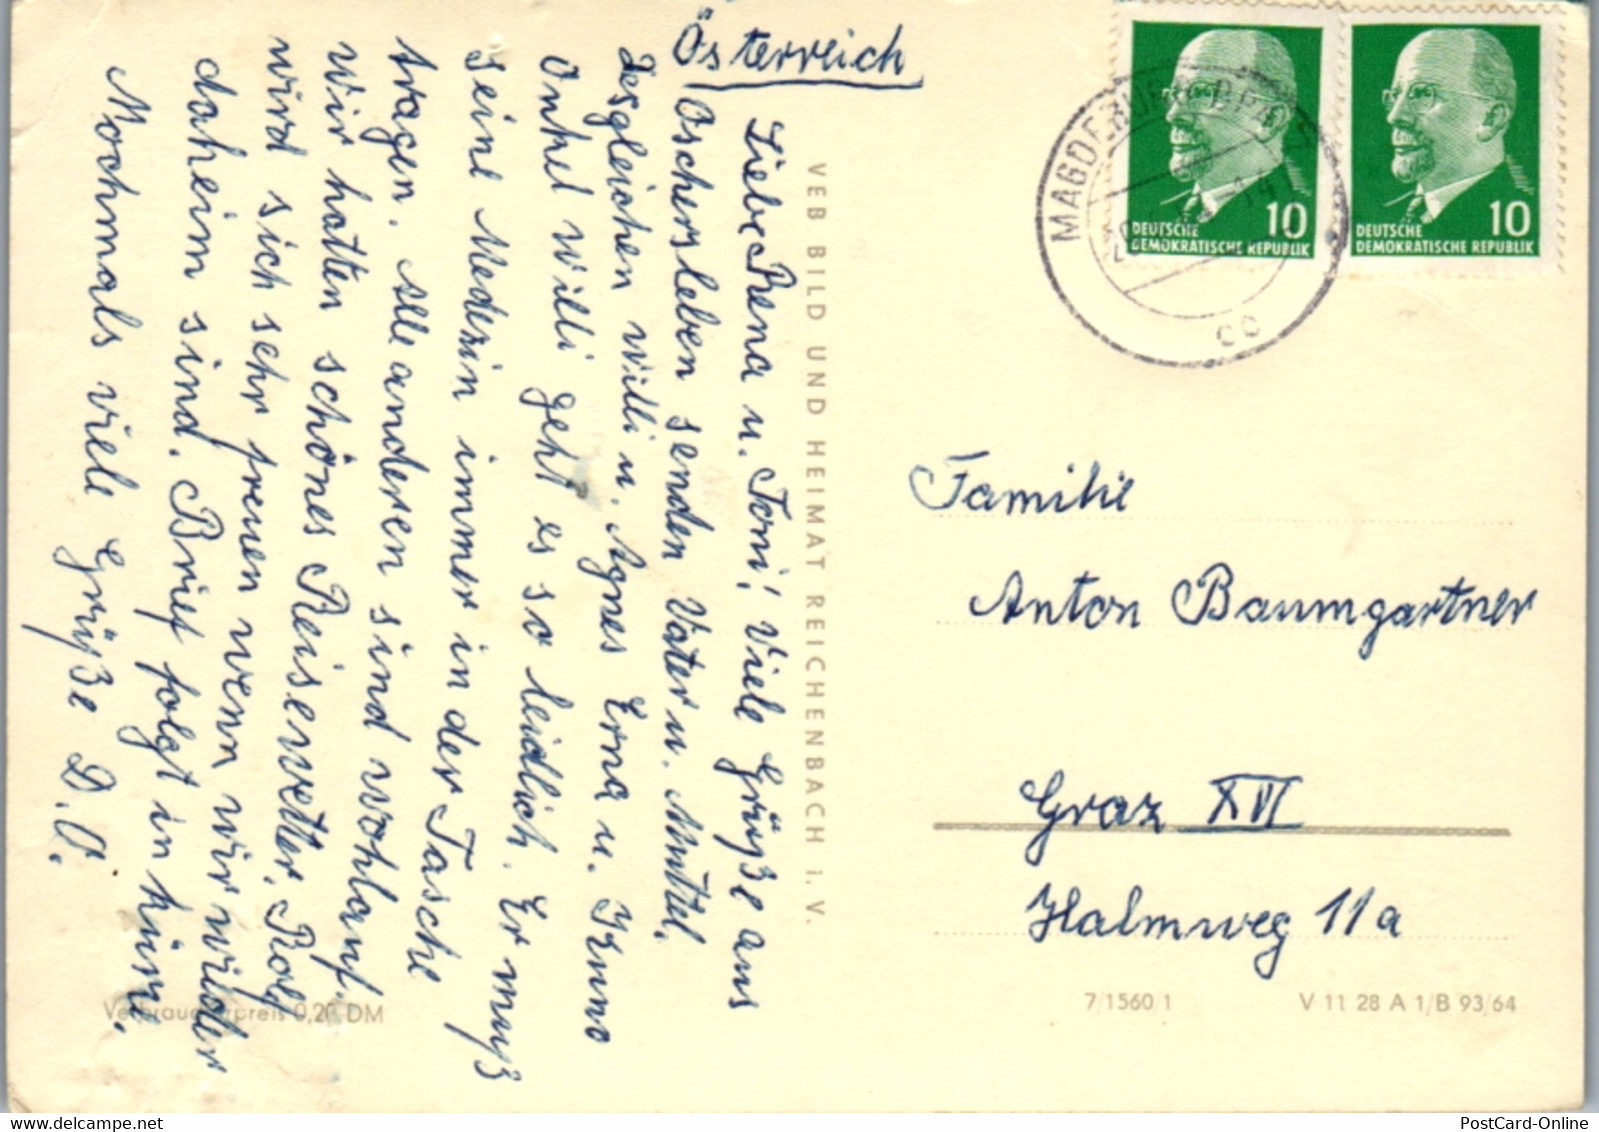 Österreich
Liebe Rena u. Toni! Viele Grüße aus
Oschersleben senden Vater u. Muttel.
Desgleichen Willi u. Agnes Erna u. Kuno
Onkel Willi geht es so leidlich. Er muß
seine Medezin immer in der Tasche
tragen. Alle anderen sind wohlauf.
Wir hatten schönes Reisewetter. Rolf
wird sich sehr freuen wenn wir wieder
daheim sind. Brief folgt in kürze.
Nochmals viele Grüße D. O.
VEB BILD UND HEIMAT REICHENBACH i. V.
Verbraucherpreis 0,20 DM
MAGDEBURG BPA
co
10
DEUTSCHE
DEMOKRATISCHE REPUBLIK
10
DEUTSCHE
DEMOKRATISCHE REPUBLIK
Familie
Anton Baumgartner
Graz XVI
Halmweg 11a
7/1560/1 V 11 28 A 1/B 93/64
PostCard-Online